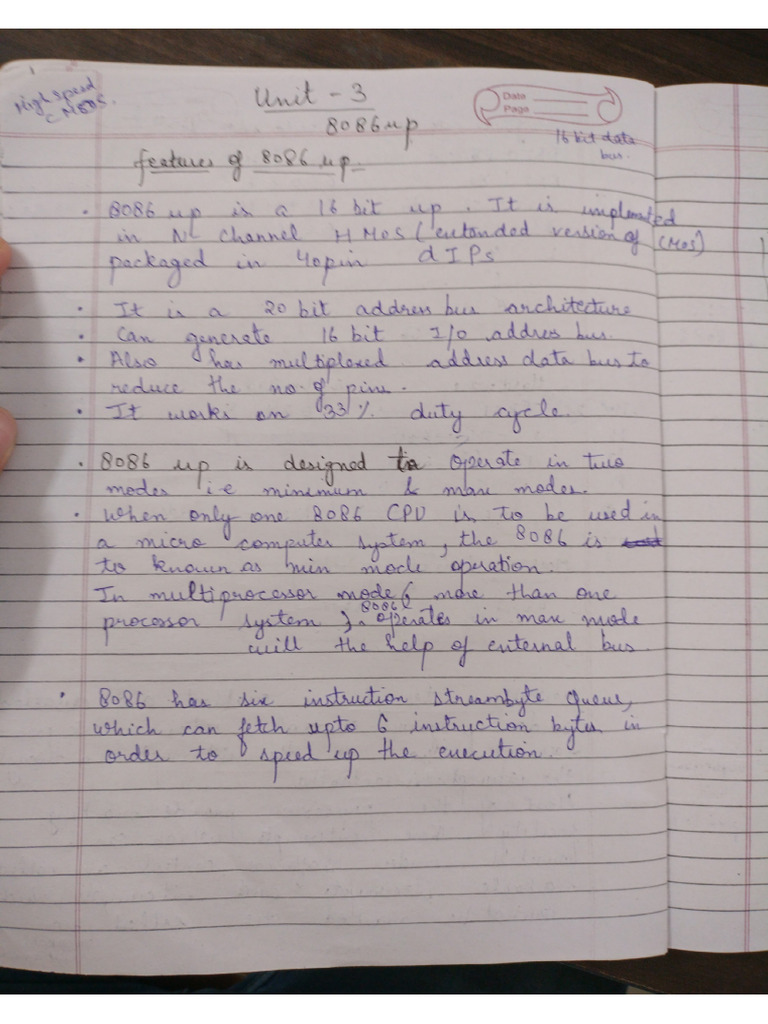 High speed
CMOS.
Unit - 3
Date
Page
8086 up
16 bit data
bus.
features of 8086 up.
• 8086 up is a 16 bit up. It is implemented
in N channel HMOS (extanded version of CMOS)
packaged in 40pin dIPs
• It is a 20 bit address bus architecture
• Can generate 16 bit I/O addres bus.
• Also has multiplexed address data bus to
reduce the no. of pins.
• It works on 33% duty cycle
• 8086 up is designed to operate in two
modes i.e minimum & max modes.
• When only one 8086 CPU is to be used in
a micro computer system, the 8086 is
to known as min mode operation.
In multiprocessor mode { more than one
processor system }. 8086 operates in max mode
will the help of external bus
• 8086 has six instruction streambyte queue,
which can fetch upto 6 instruction bytes in
order to speed up the execution.